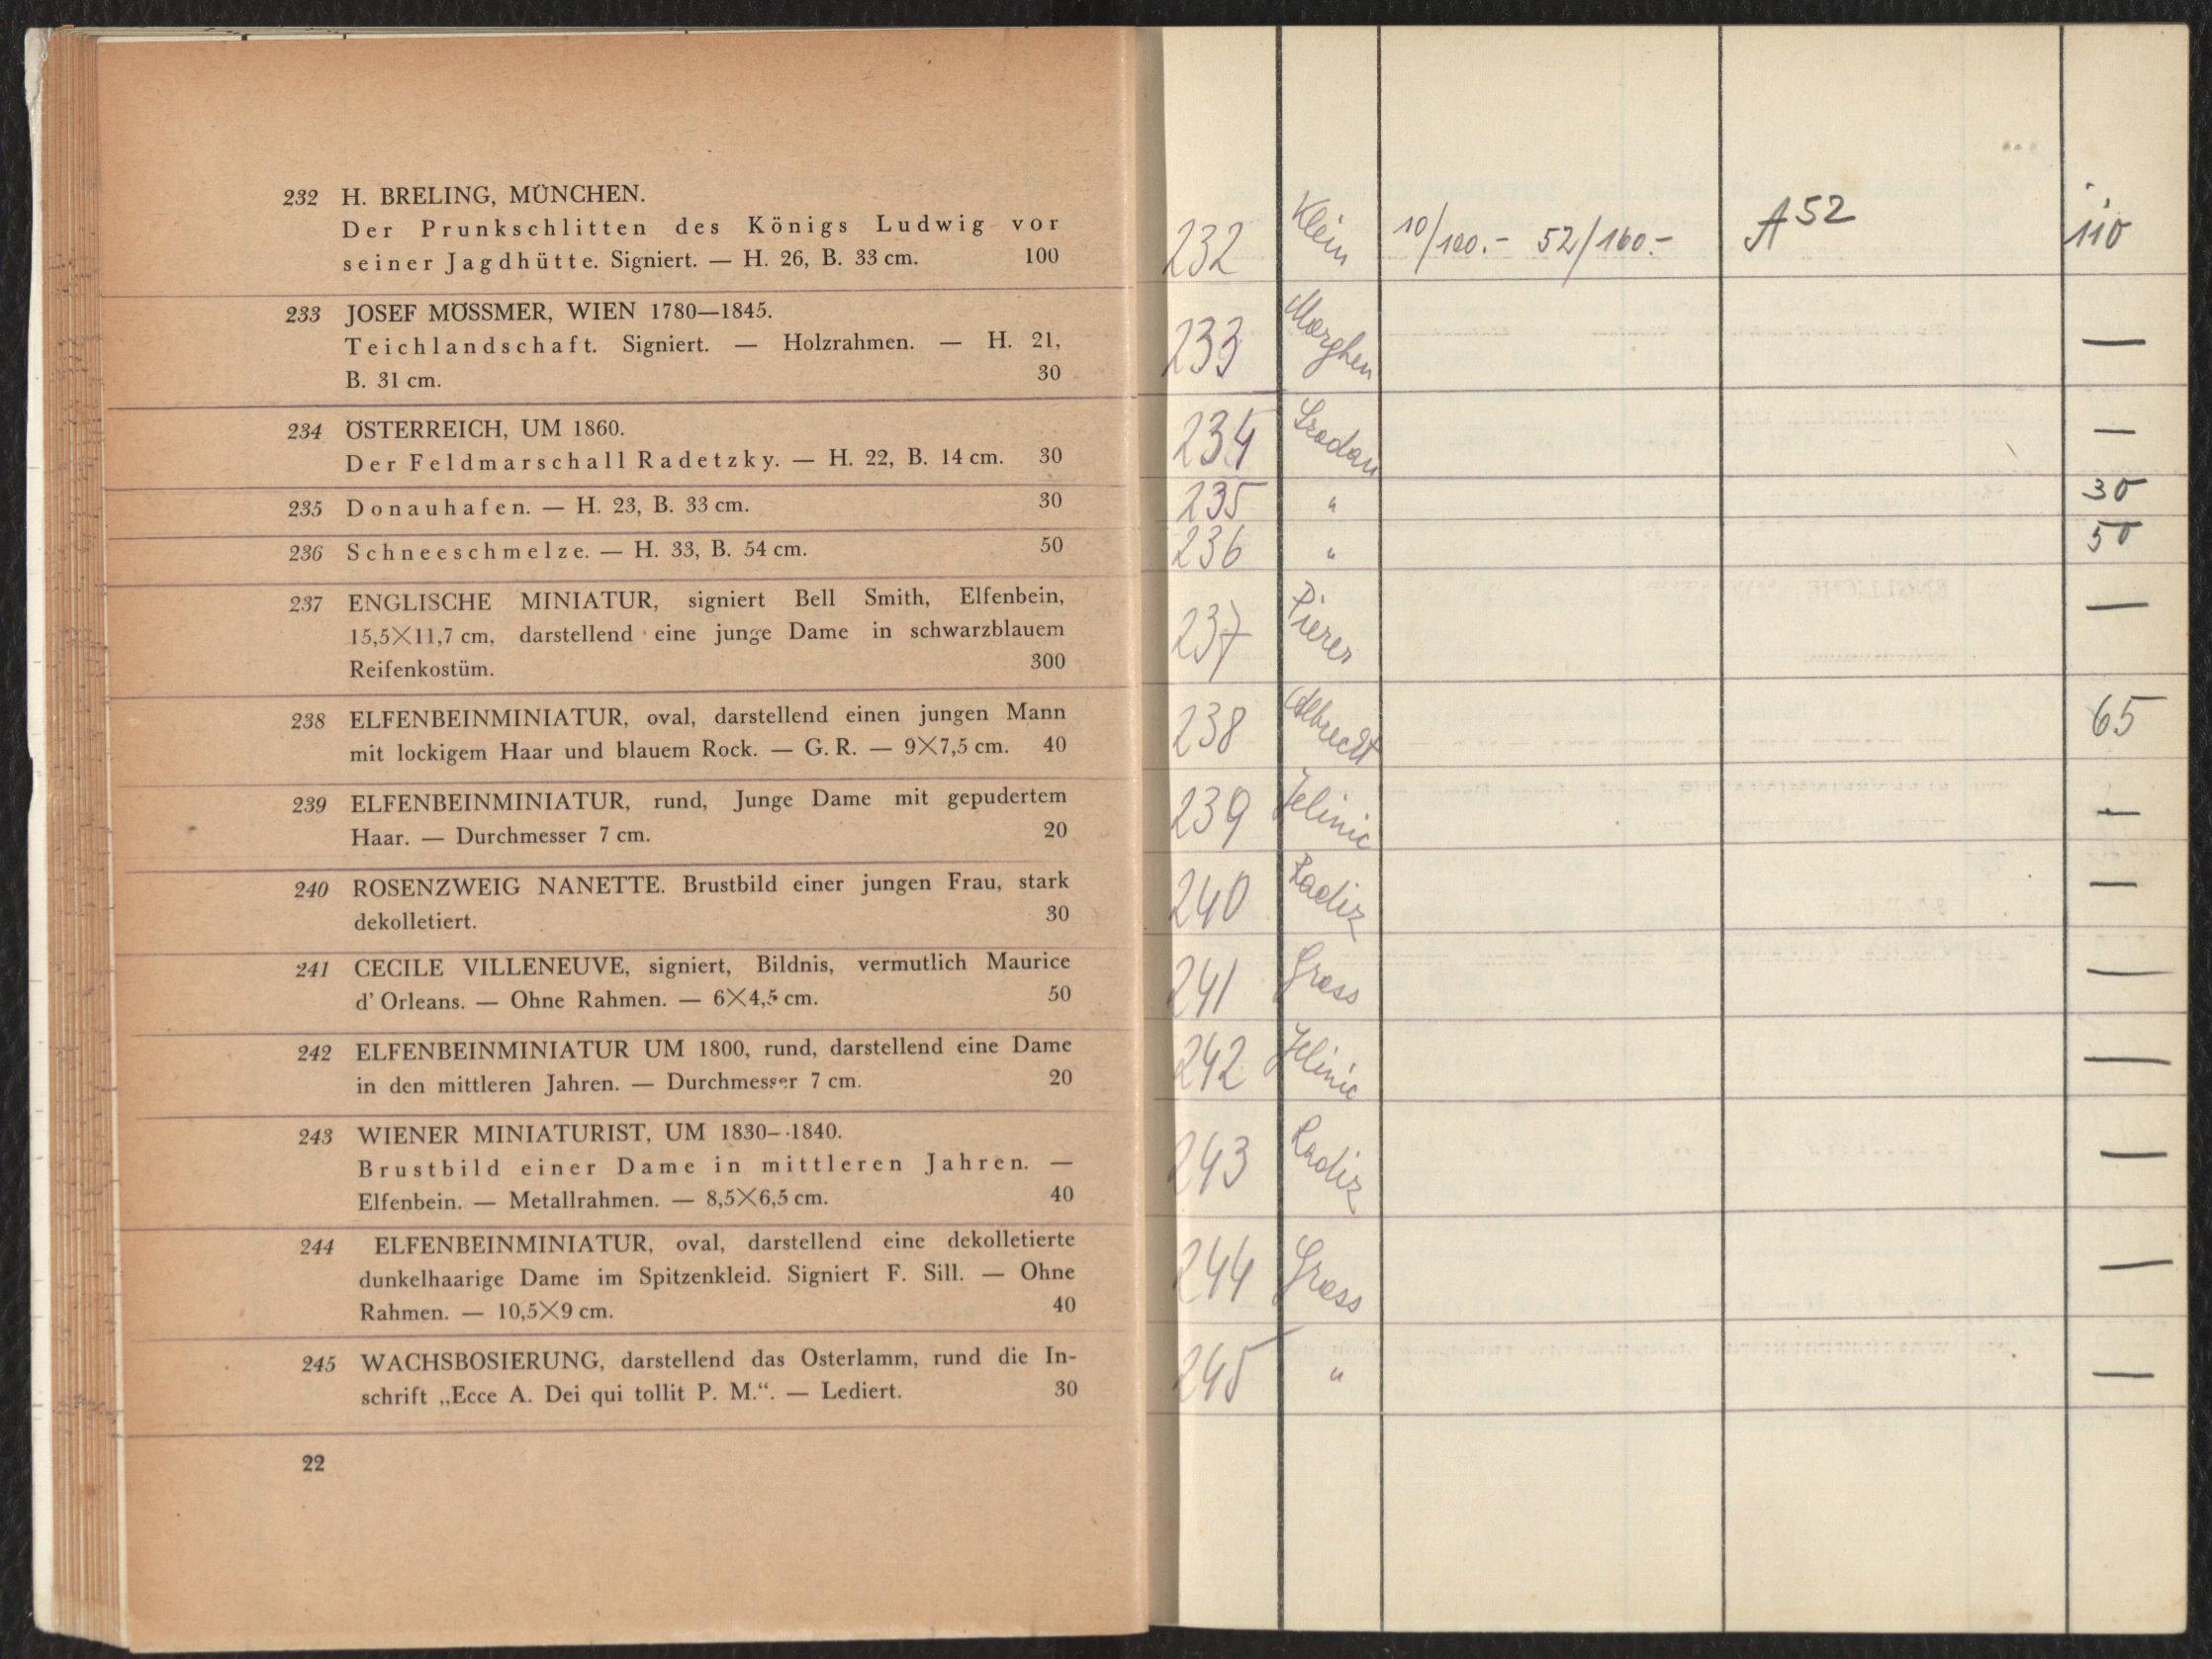 232 H. BRELING, MÜNCHEN.
Der Prunkschlitten des Königs Ludwig vor
seiner Jagdhütte. Signiert. — H. 26, B. 33 cm. 100
233 JOSEF MÖSSMER, WIEN 1780—1845.
Teichlandschaft. Signiert. — Holzrahmen. — H. 21,
B. 31 cm. 30
234 ÖSTERREICH, UM 1860.
Der Feldmarschall Radetzky. — H. 22, B. 14 cm. 30
235 Donauhafen. — H. 23, B. 33 cm. 30
236 Schneeschmelze. — H. 33, B. 54 cm. 50
237 ENGLISCHE MINIATUR, signiert Bell Smith, Elfenbein,
15,5×11,7 cm, darstellend eine junge Dame in schwarzblauem
Reifenkostüm. 300
238 ELFENBEINMINIATUR, oval, darstellend einen jungen Mann
mit lockigem Haar und blauem Rock. — G. R. — 9×7,5 cm. 40
239 ELFENBEINMINIATUR, rund, Junge Dame mit gepudertem
Haar. — Durchmesser 7 cm. 20
240 ROSENZWEIG NANETTE. Brustbild einer jungen Frau, stark
dekolletiert. 30
241 CECILE VILLENEUVE, signiert, Bildnis, vermutlich Maurice
d' Orleans. — Ohne Rahmen. — 6×4,5 cm. 50
242 ELFENBEINMINIATUR UM 1800, rund, darstellend eine Dame
in den mittleren Jahren. — Durchmesser 7 cm. 20
243 WIENER MINIATURIST, UM 1830—1840.
Brustbild einer Dame in mittleren Jahren. —
Elfenbein. — Metallrahmen. — 8,5×6,5 cm. 40
244 ELFENBEINMINIATUR, oval, darstellend eine dekolletierte
dunkelhaarige Dame im Spitzenkleid. Signiert F. Sill. — Ohne
Rahmen. — 10,5×9 cm. 40
245 WACHSBOSIERUNG, darstellend das Osterlamm, rund die In-
schrift „Ecce A. Dei qui tollit P. M.“. — Lediert. 30
22
232 Klein 10/100.- 52/160.- A 52 110
233 Marghen —
234 —
235 " 30
236 " 50
237 —
238 Albrecht 65
239 Jelinic —
240 Ladiz —
241 Gross —
242 Jelinic —
243 Ladiz —
244 Gross —
245 " —